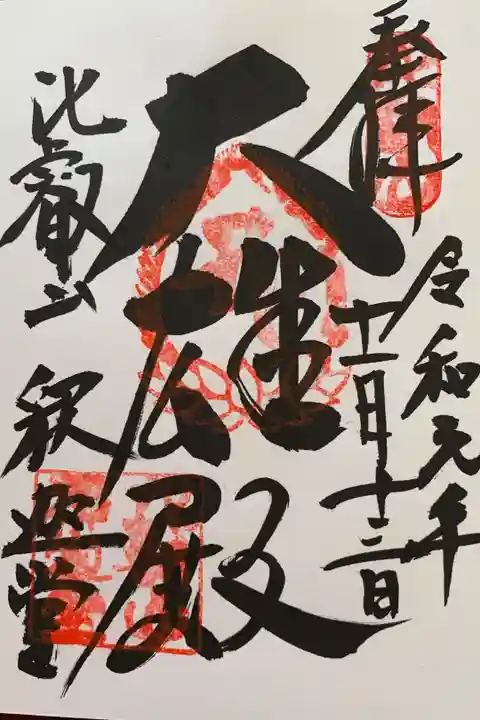 奉拝
令和元年
十一月十三日
大雄殿
比叡山 釈迦堂